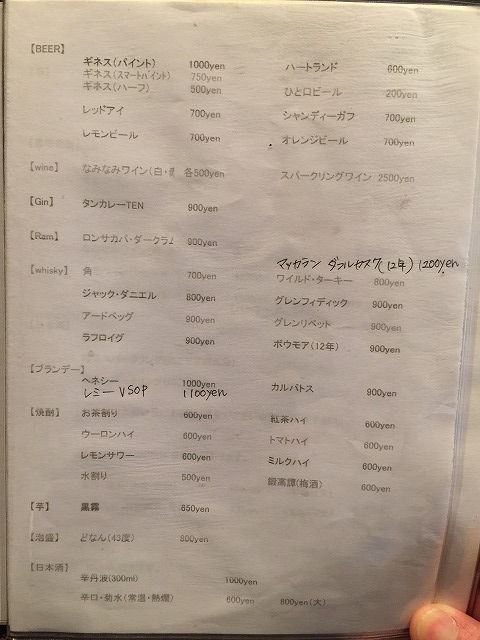 【BEER】
ギネス(パイント) 1000yen ハートランド 600yen
ギネス(スマートパイント) 750yen
ギネス(ハーフ) 500yen ひと口ビール 200yen
レッドアイ 700yen シャンディーガフ 700yen
レモンビール 700yen オレンジビール 700yen
【wine】 なみなみワイン(白・ 各500yen スパークリングワイン 2500yen
【Gin】 タンカレーTEN 900yen
【Ram】 ロンサカパ・ダークラム 900yen
マッカラン ダブルカスク(12年) 1200yen
【whisky】 角 700yen ワイルド・ターキー 800yen
ジャック・ダニエル 800yen グレンフィディック 900yen
アードベッグ 900yen グレンリベット 900yen
ラフロイグ 900yen ボウモア(12年) 900yen
【ブランデー】
ヘネシー 1000yen カルバトス 900yen
レミー VSOP 1100yen
【焼酎】 お茶割り 600yen 紅茶ハイ 600yen
ウーロンハイ 600yen トマトハイ 600yen
レモンサワー 600yen ミルクハイ 600yen
水割り 500yen 鍛高譚(梅酒) 600yen
【芋】 黒霧 650yen
【泡盛】 どなん(43度) 800yen
【日本酒】
辛丹波(300ml) 1000yen
辛口・菊水(常温・熱燗) 600yen 800yen(大)